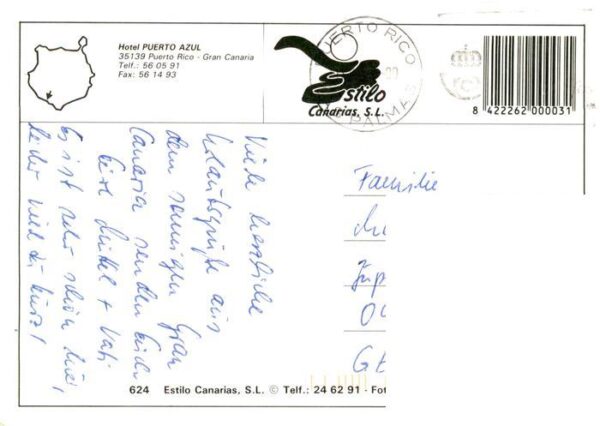 Hotel PUERTO AZUL
35139 Puerto Rico - Gran Canaria
Telf.: 56 05 91
Fax: 56 14 93
PUERTO RICO
PALMAS
Estilo
Canarias, S.L.
8 422262 000031
Viele herzliche
Urlaubsgrüße aus
dem sonnigen Gran
Canaria senden Euch
+ Vati
Es ist sehr schön hier,
leider viel zu kurz!
Familie
624 Estilo Canarias, S.L. © Telf.: 24 62 91 - Fot